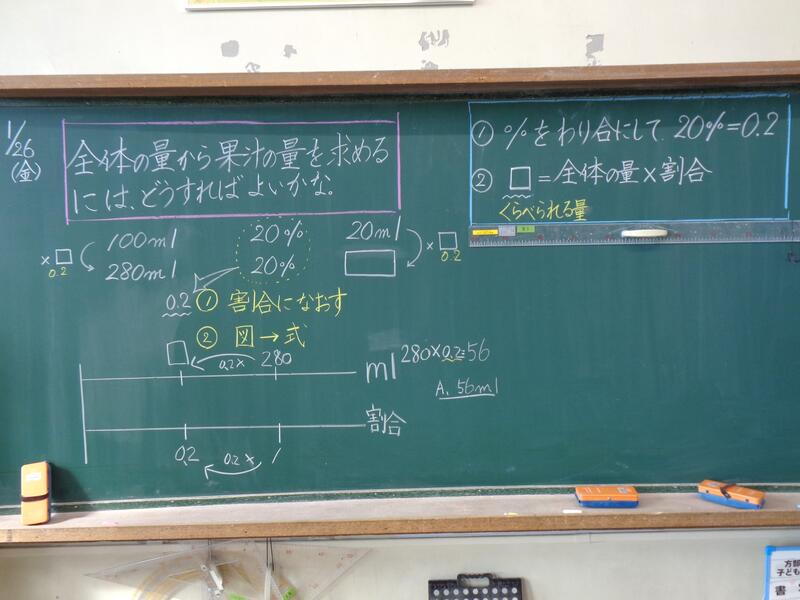 1/26
(金)
全体の量から果汁の量を求める
には、どうすればよいかな。
① %をわり合にして 20%=0.2
② □=全体の量×割合
くらべられる量
100ml 20% 20ml
×□ 280ml 20% □ ×□
0.2 0.2
0.2 ① 割合になおす
② 図→式
□ 0.2× 280 ml
280×0.2=56
A. 56ml
割合
0.2 0.2× 1
方部
子ども
書